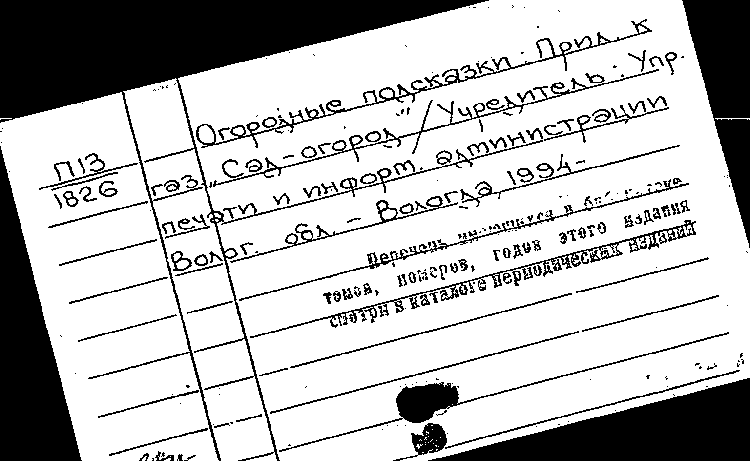 П13
1826
Огородные подсказки : Прил. к
газ. „Сад-огород" / Учредитель : Упр.
печати и информ. администрации
Волог. обл. - Вологда, 1994-
Перечень имеющихся в библиотеке
томов, номеров, годов этого издания
смотри в каталоге периодических изданий